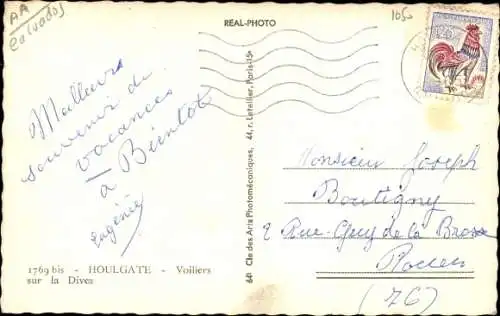 AA
Calvados
REAL-PHOTO
1050
Meilleurs
souvenir de
vacances
à Bientot
Eugénie
1769 bis - HOULGATE - Voiliers
sur la Dives
641 Cie des Arts Photomécaniques, 44, r. Letellier, Paris-15e
Monsieur Joseph
Boutigny
2 Rue Guy de la Brosse
Rouen
(76)